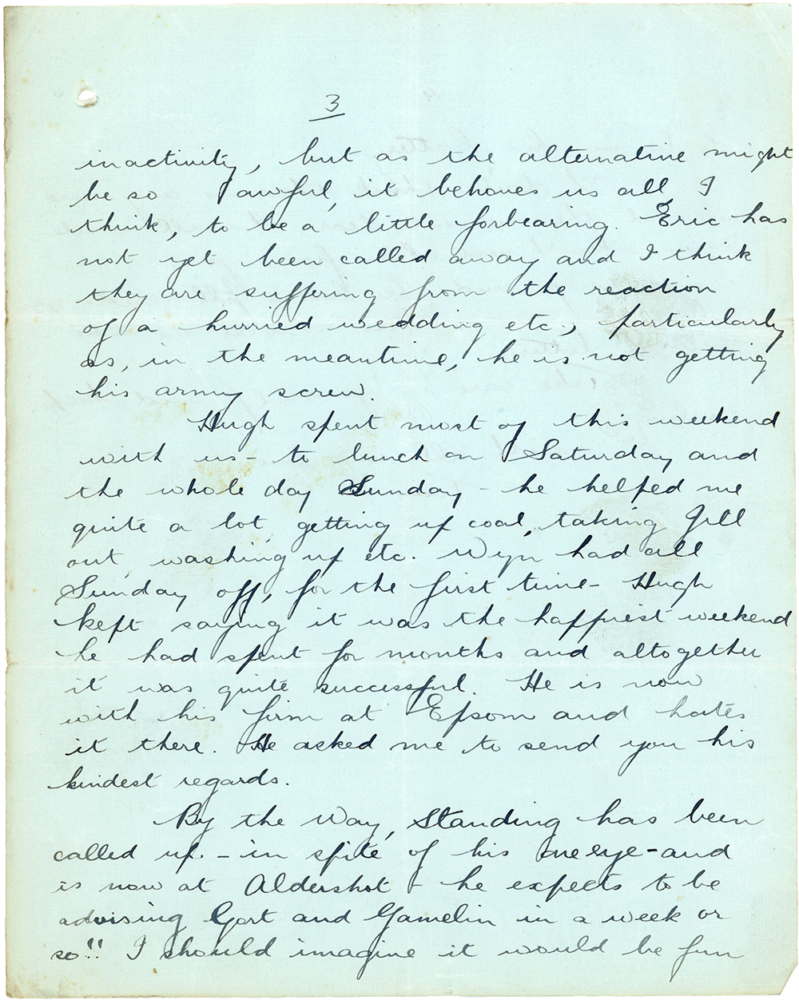 3
inactivity, but as the alternative might
be so awful, it behoves us all I
think, to be a little forbearing. Eric has
not yet been called away and I think
they are suffering from the reaction
of a hurried wedding etc, particularly
as, in the meantime, he is not getting
his army screw.
Hugh spent most of this weekend
with us – to lunch on Saturday and
the whole day Sunday – he helped me
quite a lot, getting up coal, taking Jill
out, washing up etc. Wyn had all
Sunday off, for the first time – Hugh
kept saying it was the happiest weekend
he had spent for months and altogether
it was quite successful. He is now
with his firm at Epsom and hates
it there. He asked me to send you his
kindest regards.
By the way, Standing has been
called up – in spite of his one eye – and
is now at Aldershot – he expects to be
advising Gort and Gamelin in a week or
so!! I should imagine it would be fun